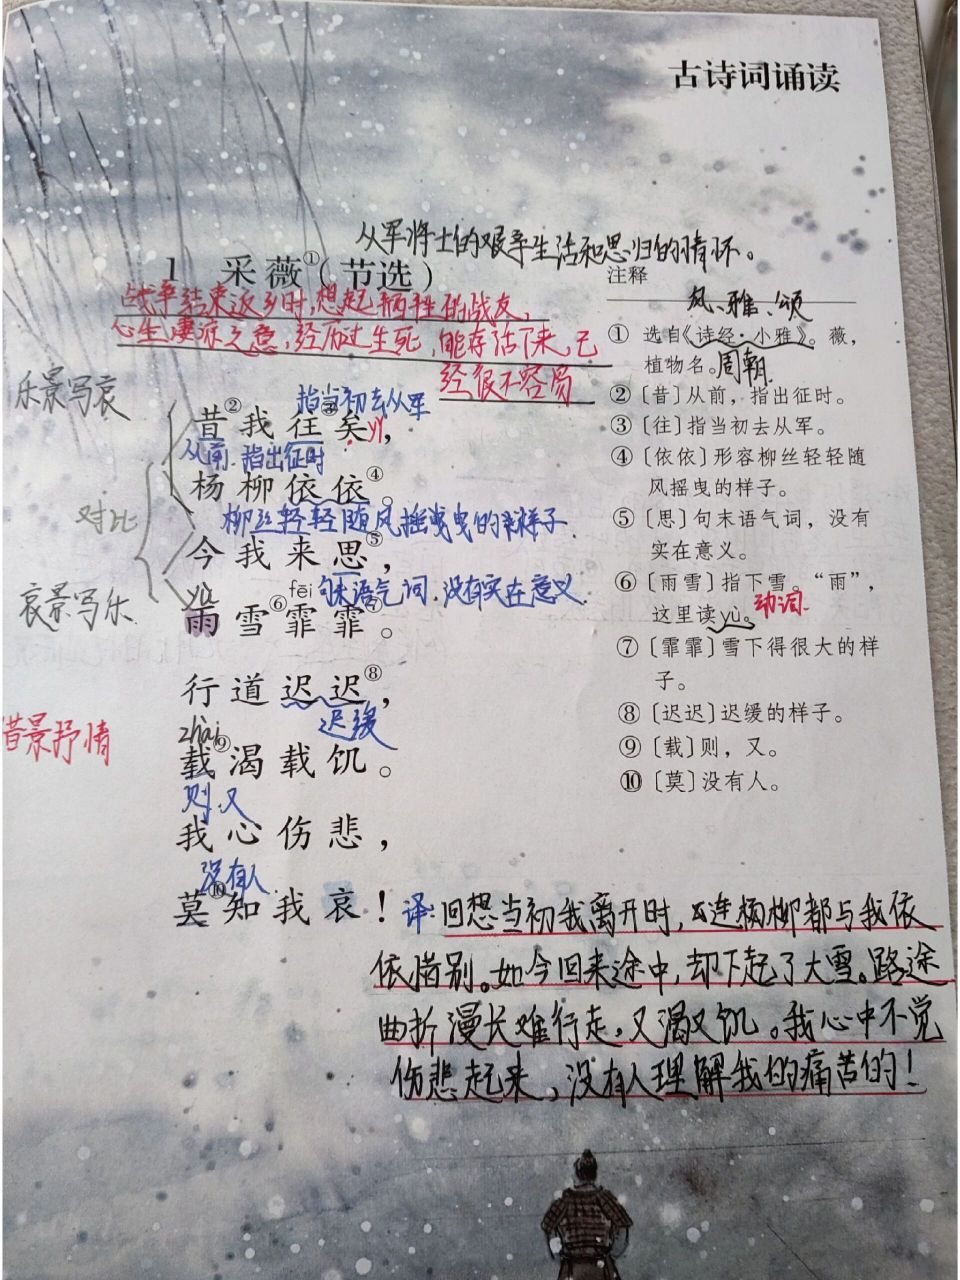 古诗词诵读
从军将士的艰辛生活和思归的情怀。
1 采薇①(节选)
战争结束返乡时,想起牺牲的战友,
心生凄凉之意,经历过生死,能存活下来,已
经很不容易
乐景写哀
对比
哀景写乐
借景抒情
指当初去从军
昔②我往③矣yǐ,
从前 指出征时
杨柳依依④。
柳丝轻轻随风摇曳的样子
今我来思⑤,
句末语气词.没有实在意义
yù fēi
雨雪⑥霏霏⑦。
行道迟迟⑧,
迟缓
zhài
载⑨渴载饥。
则.又
我心伤悲,
没有人
莫⑩知我哀!
译:回想当初我离开时,连杨柳都与我依
依惜别。如今回来途中,却下起了大雪。路途
曲折漫长难行走,又渴又饥。我心中不觉
伤悲起来,没有人理解我的痛苦的!
注释
风、雅、颂
① 选自《诗经·小雅》。薇,
植物名。周朝
② 〔昔〕从前,指出征时。
③ 〔往〕指当初去从军。
④ 〔依依〕形容柳丝轻轻随
风摇曳的样子。
⑤ 〔思〕句末语气词,没有
实在意义。
⑥ 〔雨雪〕指下雪。“雨”,
这里读yù。动词
⑦ 〔霏霏〕雪下得很大的样
子。
⑧ 〔迟迟〕迟缓的样子。
⑨ 〔载〕则,又。
⑩ 〔莫〕没有人。